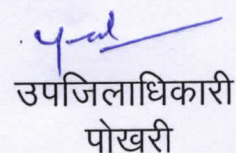 उपजिलाधिकारी
पोखरी